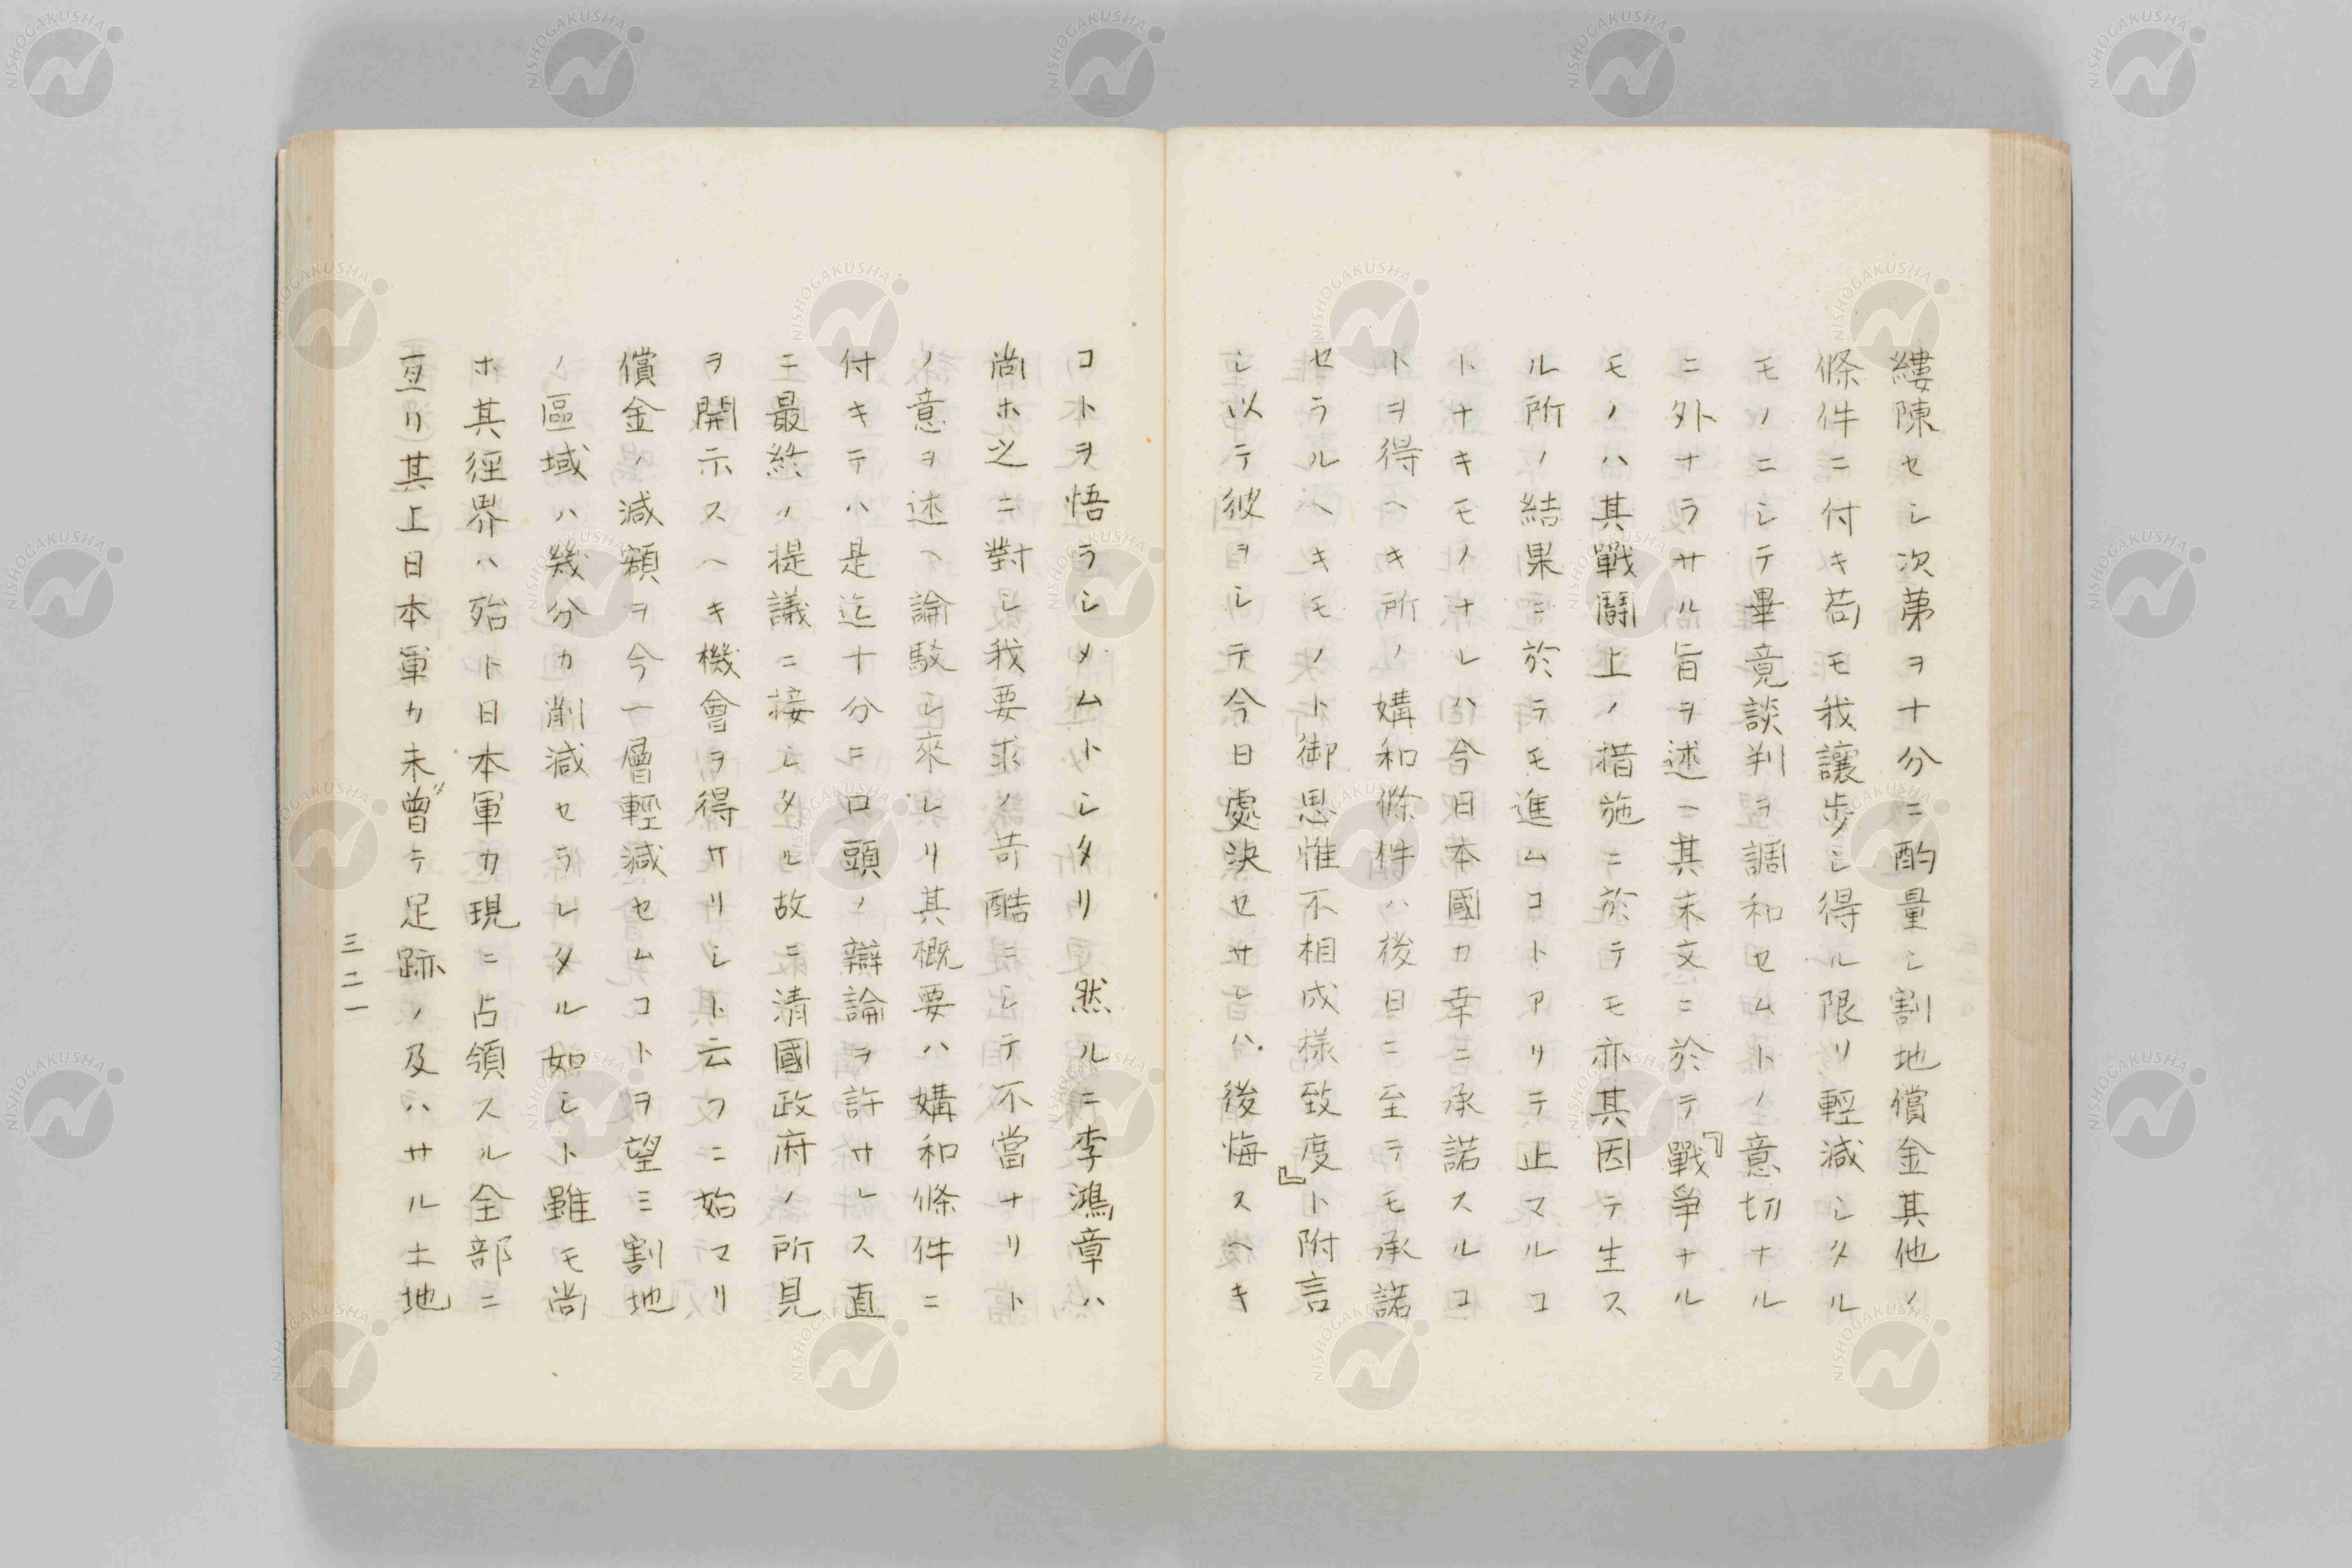 縷陳セシ次第ヲ十分ニ酌量シ割地償金其他ノ
條件ニ付キ苟モ我讓歩シ得ル限リ輕減シタル
モノニシテ畢竟談判ヲ調和セムトノ意切ナル
ニ外ナラサル旨ヲ述ヘ其末文ニ於テ『戰爭ナル
モノハ其戰鬪上ノ措施ニ於テモ亦其因テ生ス
ル所ノ結果ニ於テモ進ムコトアリテ止マルコ
トナキモノナレハ今日日本國カ幸ニ承諾スルコ
トヲ得ヘキ所ノ媾和條件ハ後日ニ至テモ承諾
セラルヘキモノト御思惟不相成樣致度』ト附言
シ以テ彼ヲシテ今日處決セサレハ後悔スヘキ
コトヲ悟ラシメムトシタリ 然ルニ李鴻章ハ
尚ホ之ニ對シ我要求ノ苛酷ニシテ不當ナリト
ノ意ヲ述ヘ論駁シ來レリ其概要ハ媾和條件ニ
付キテハ是迄十分ニ口頭ノ辯論ヲ許サレス直
ニ最終ノ提議ニ接シタル故ニ清國政府ノ所見
ヲ開示スヘキ機會ヲ得サリシト云フニ始マリ
償金ノ減額ヲ今一層輕減セムコトヲ望ミ割地
ノ區域ハ幾分カ削減セラレタル如シト雖モ尚
ホ其徑界ハ殆ト日本軍カ現ニ占領スル全部ニ
亙リ其上日本軍カ未曾テ足跡ノ及ハサル土地
三二一
NISHOGAKUSHA